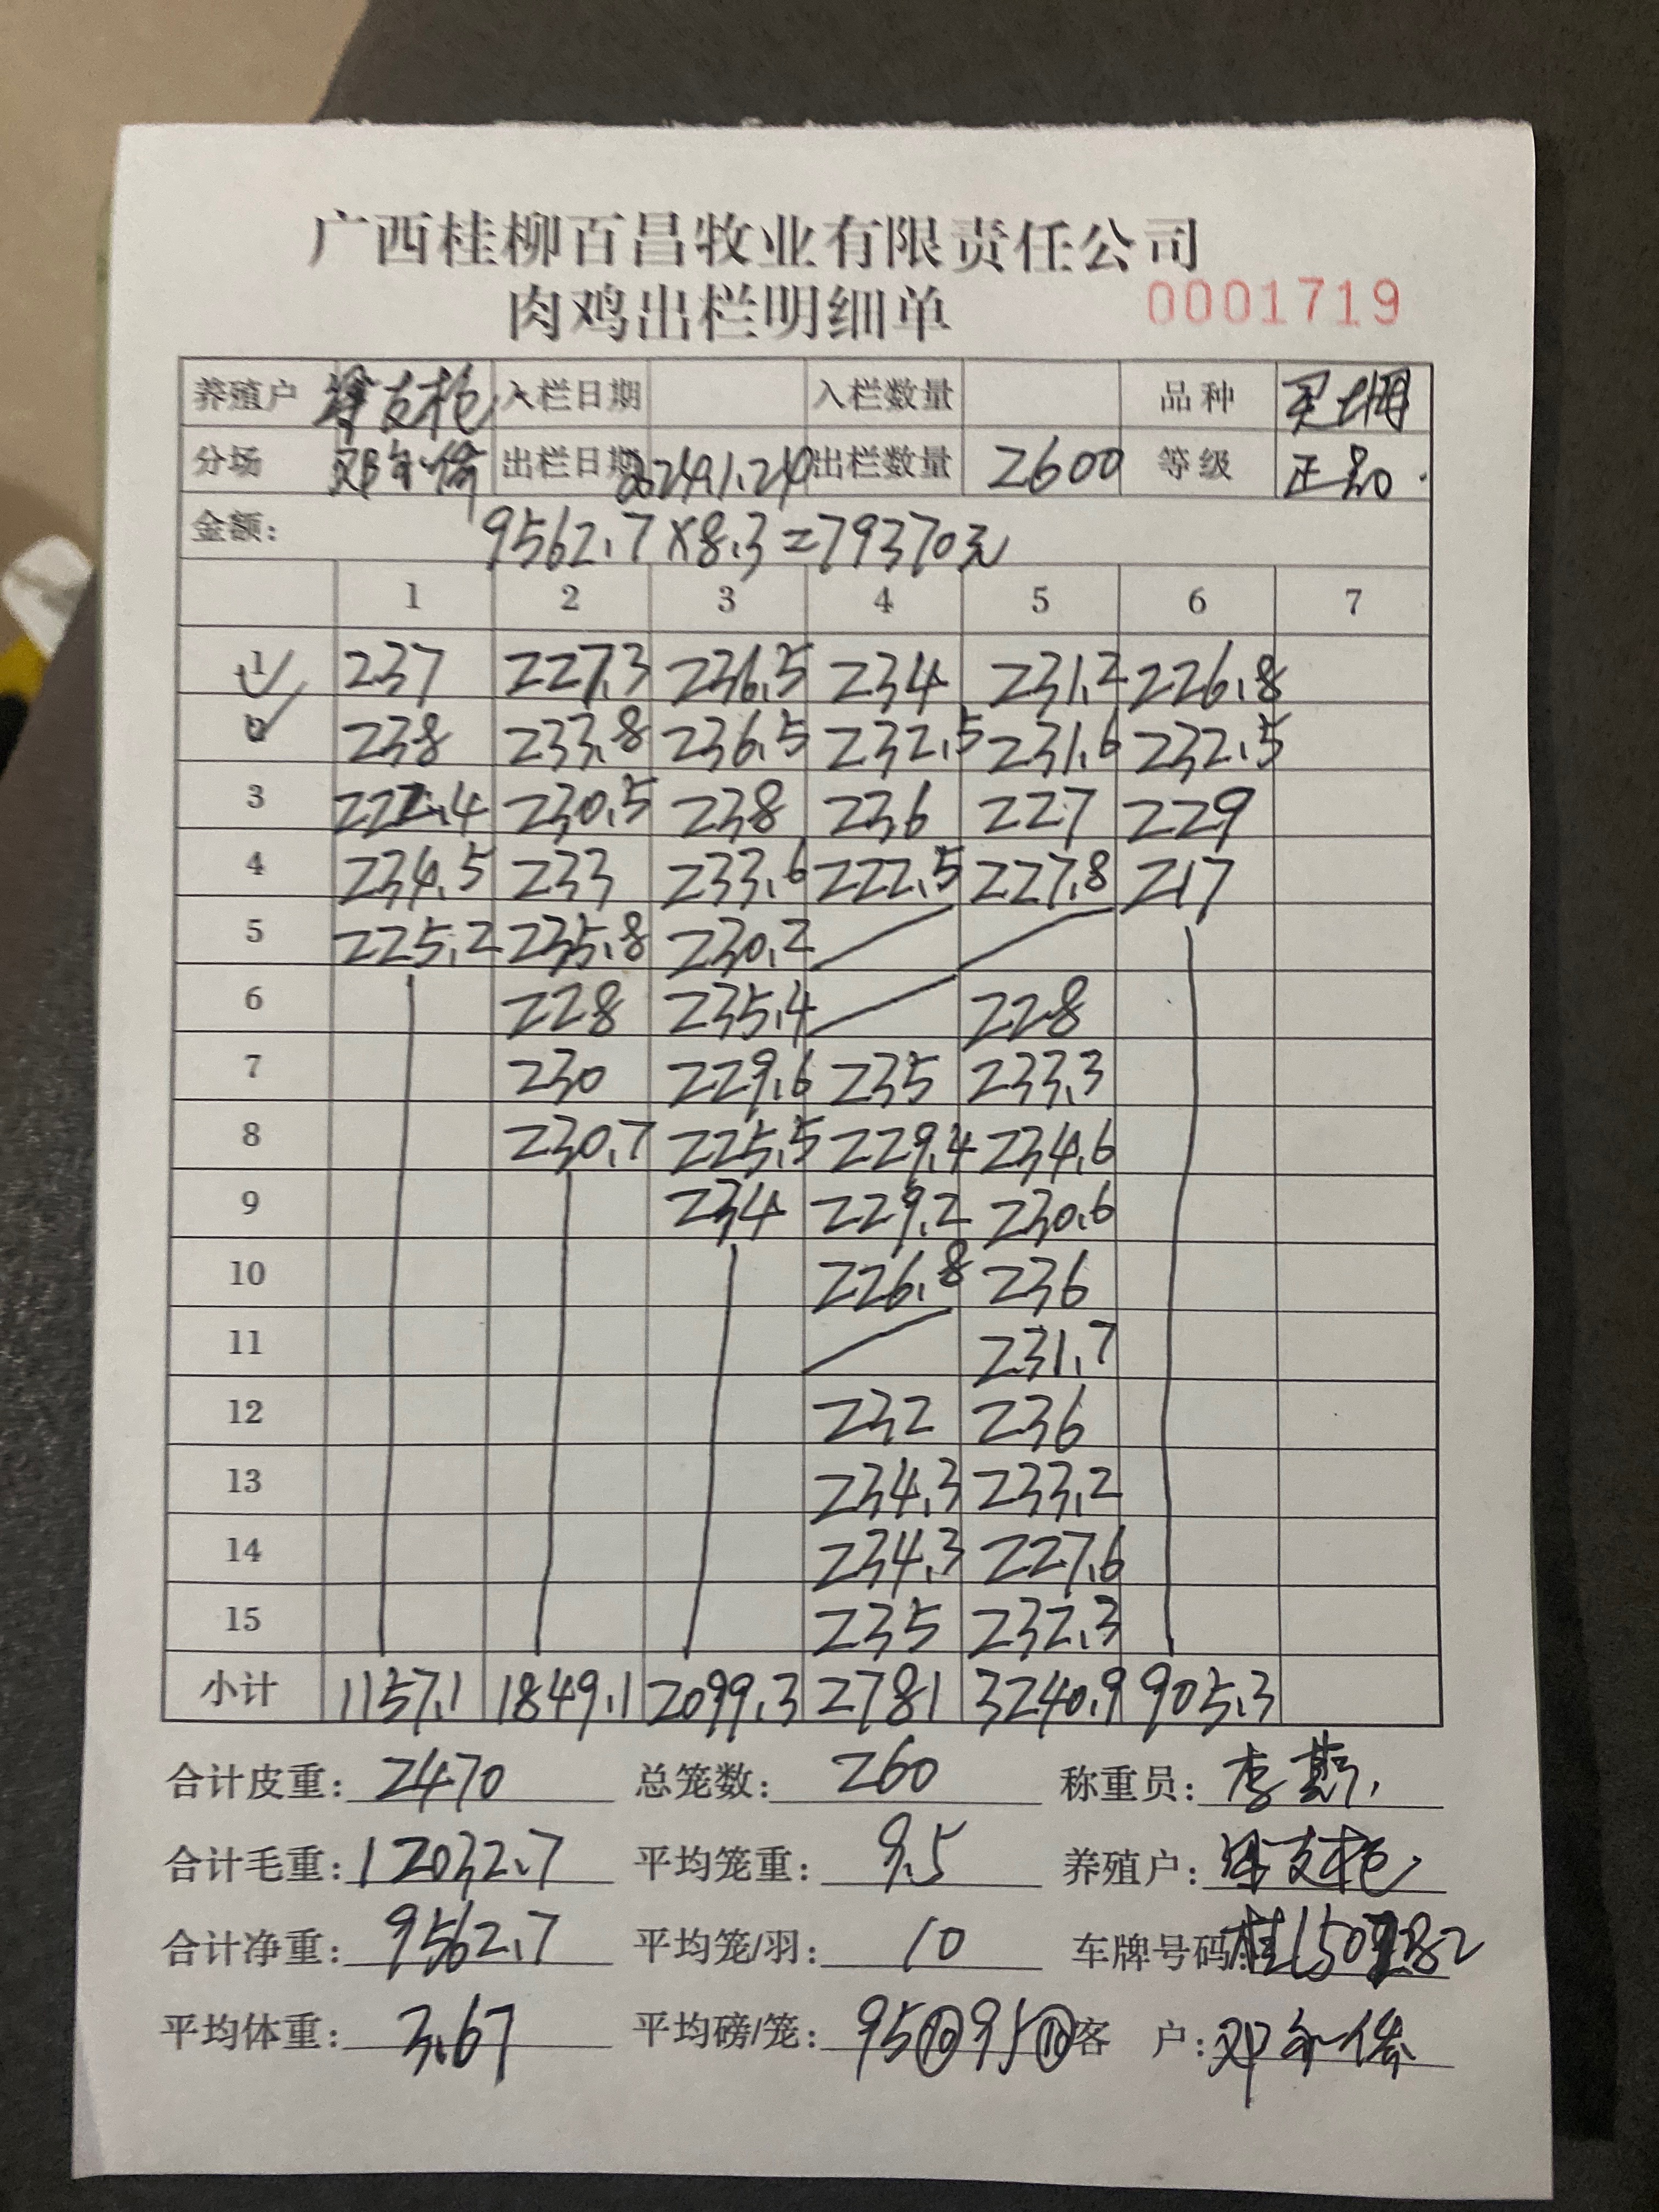 广西桂柳百昌牧业有限责任公司
肉鸡出栏明细单 0001719
养殖户 入栏日期 入栏数量 品种
分场 出栏日期 2024.1.24 出栏数量 2600 等级 正品.
金额: 9562.7×8.3=79370元
1 2 3 4 5 6 7
1 237 227.3 236.5 234 231.2 226.8
2 238 233.8 236.5 232.5 231.6 232.5
3 222.4 230.5 238 236 227 229
4 234.5 233 233.6 222.5 227.8 217
5 225.2 235.8 230.2
6 228 235.4 228
7 230 229.6 235 233.3
8 230.7 225.5 229.4 234.6
9 234 229.2 230.6
10 226.8 236
11 231.7
12 232 236
13 234.3 233.2
14 234.3 227.6
15 235 232.3
小计 1157.1 1849.1 2099.3 2781 3240.9 905.3
合计皮重: 2470 总笼数: 260 称重员: 李
合计毛重: 12032.7 平均笼重: 9.5 养殖户:
合计净重: 9562.7 平均笼/羽: 10 车牌号码:
平均体重: 3.67 平均磅/笼: 95⑩95⑩ 客 户: 邓